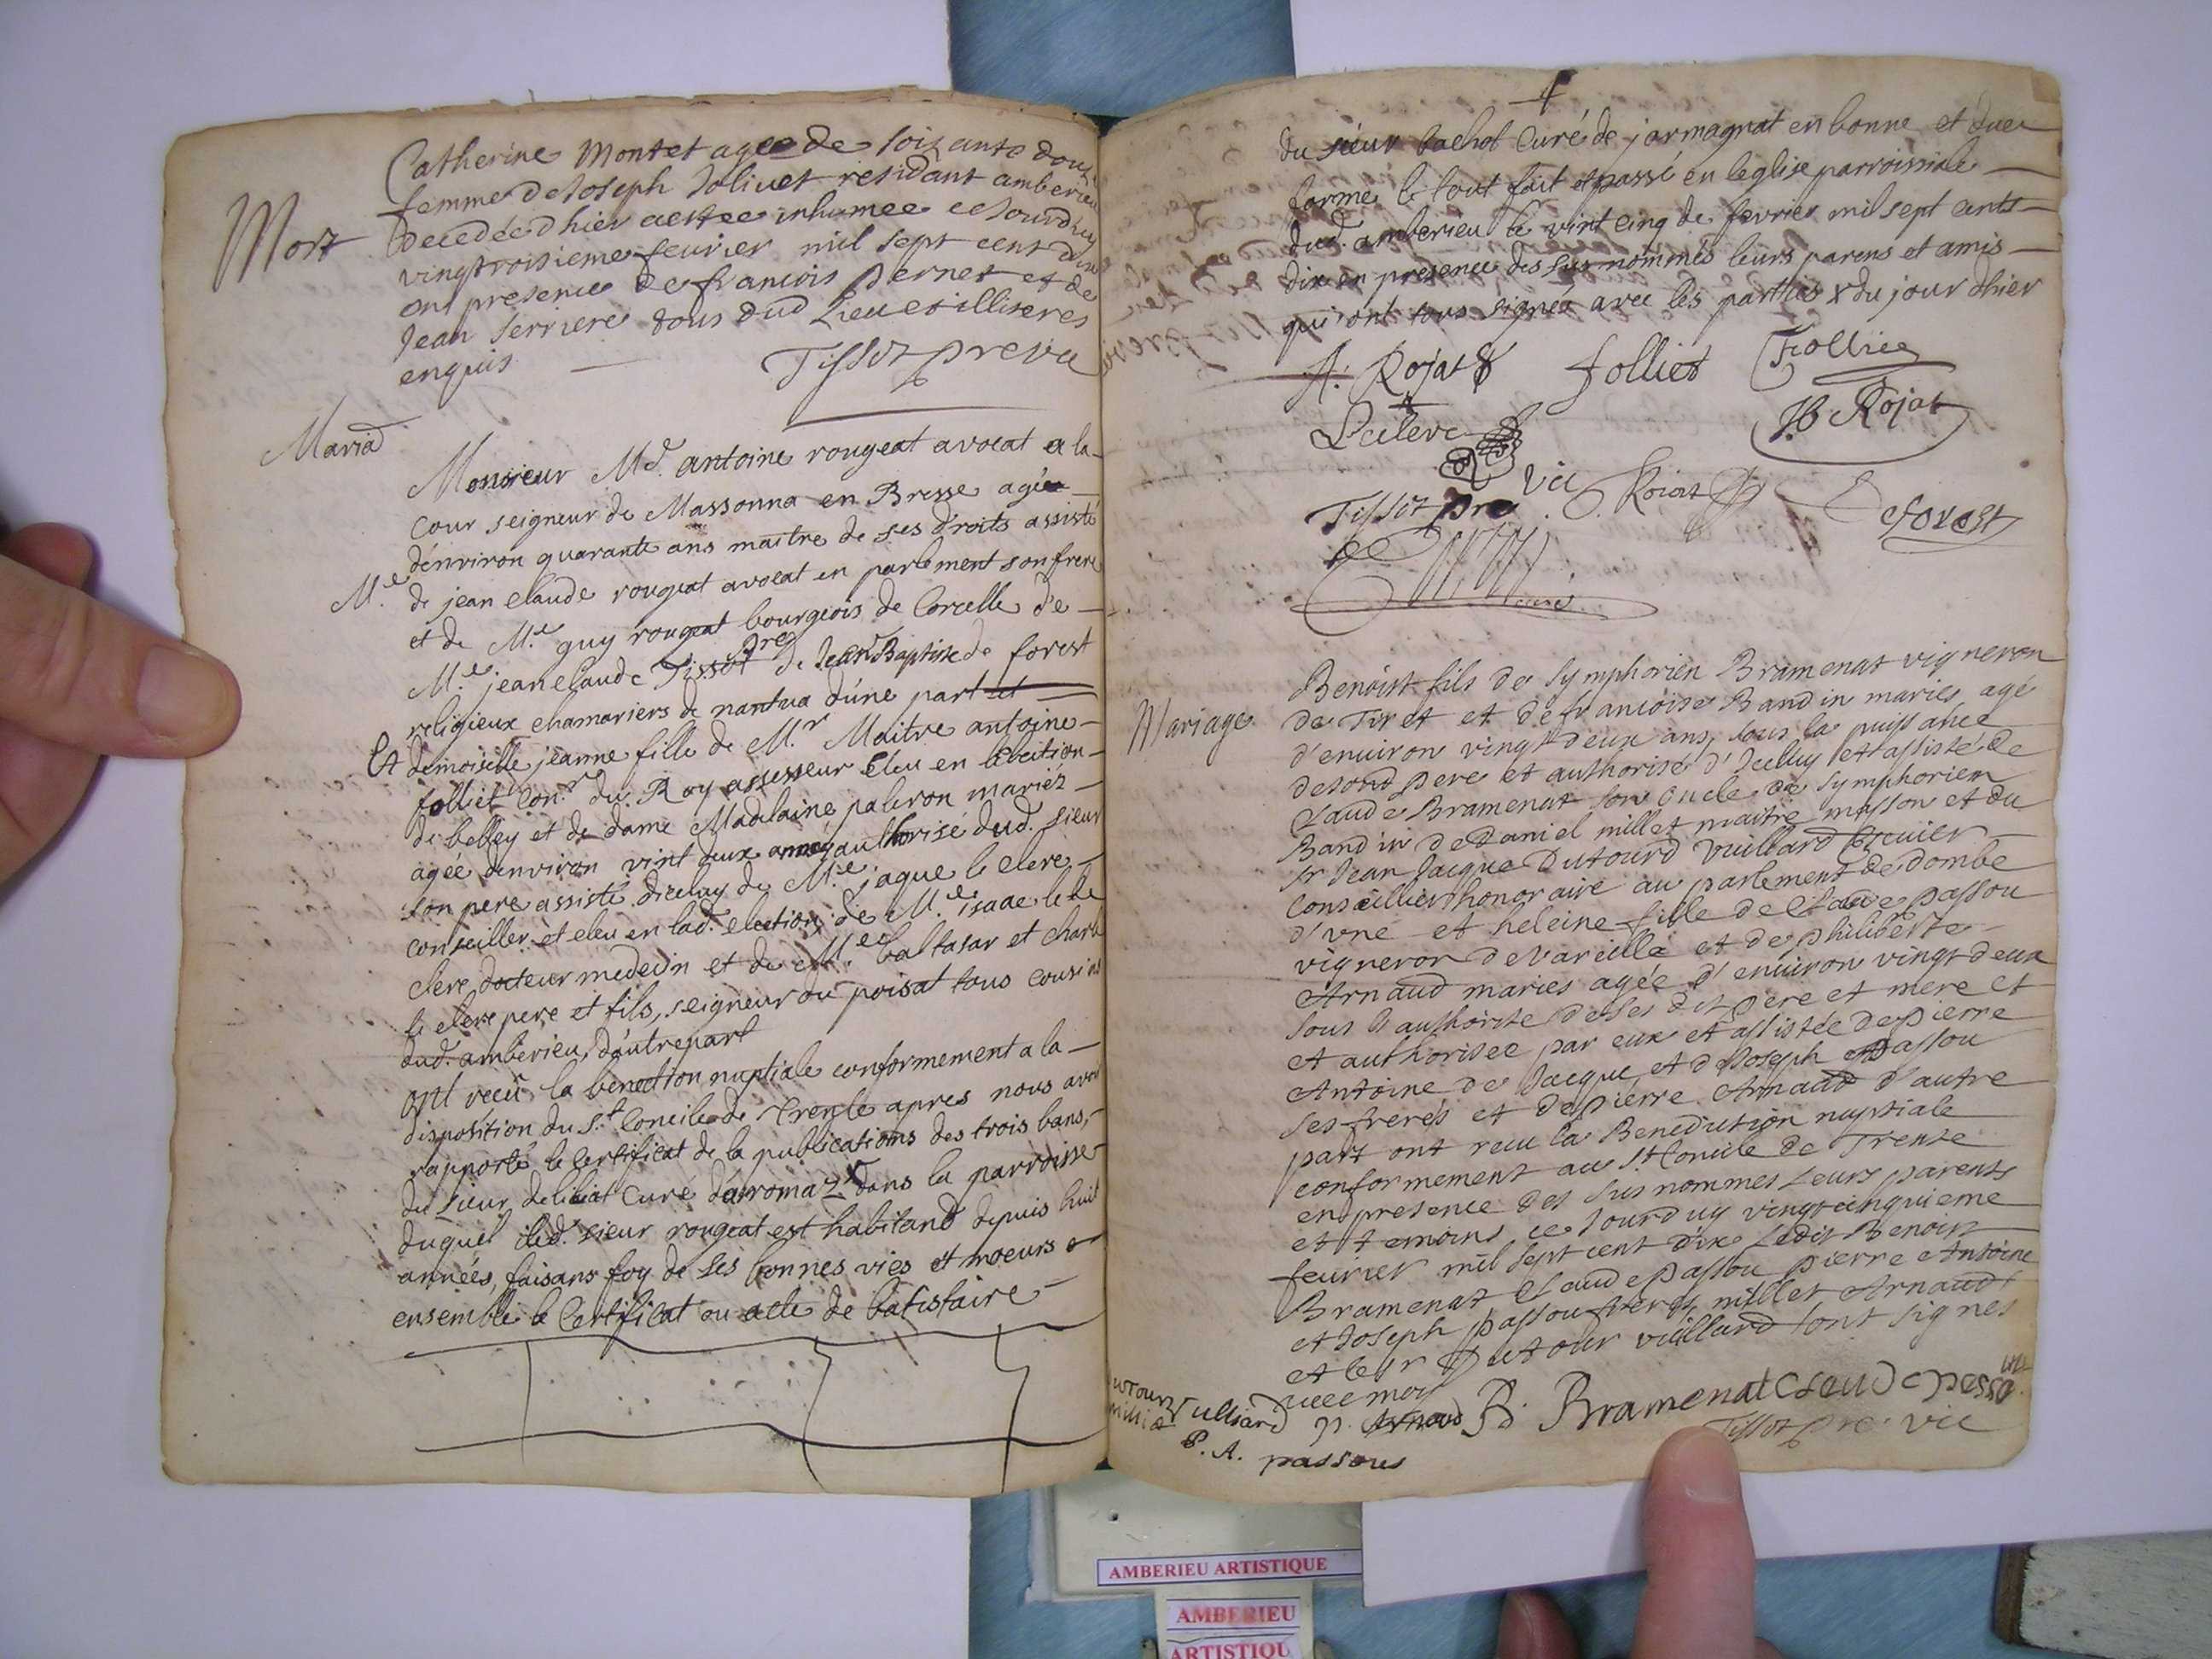 Mort
Catherine Montet agee de soixante douze
femme de Joseph Jolivet residant amberieu
decedée dhier a estee inhumee ce Jourduy
vingtroisieme feurier mil sept cent dix
en presence de francois pernet et de
Jean serriere tous dud Lieu et illiteres
enquis
Tissot pre vic
Mariad
Monsieur Me. antoine rougeat avocat a la
cour seigneur de Massonna en Bresse agée
d'environ quarante ans maitre de ses droits assisté
de Me. jean claude rougeat avocat en parlement son frere
et de Me. guy rougeat bourgeois de Corcelle de
Me. jean claude Tissot pre de Jean Baptiste de forest
religieux chamariers de nantua d'une part et
Et demoiselle jeanne fille de Mr. Maitre antoine
folliet Con.r du Roy assesseur Eleu en lelection
de belley et de dame Madelaine paleron mariés
agée d'environ vint deux années authorisé dud. sieur
son pere assisté diceluy de Me. jaque le clerc
conseiller et eleu en lad. election, de Me. isaac le
clerc docteur medecin et de Me. baltasar et charle
le clerc pere et fils, seigneur du poisat tous cousins
dud. amberieu, d'autre part
ont recu la benection nuptiale conformement a la
disposition du St. Concile de Trente apres nous avoir
rapporté le Certificat de la publications des trois bans,
du sieur Curé d'arromaz dans la parroisse
duquel led. sieur rougeat est habitand depuis huit
années, faisans foy de ses bonnes vies et moeurs
ensemble le Certificat ou acte de batistaire
du sieur bachot Curé de jarmagnat en bonne et due
forme le tout fait et passé en leglise parroissiale
dud. amberieu le vint cinq de fevrier mil sept cents
dix en presence des sus nommés leurs parens et amis
qui ont tous signés avec les parties & du jour dhier
A. Rojat folliet Folliet
Leclerc JB. Rojat
Tissot pre vic Rojat Deforest
curé
Mariage
Benoist fils de Symphorien Bramenat vigneron
de Tiret et de francoise Bandin maries agé
d'enuiron vingt deux ans, sous la puissance
de sond pere et authorisé d'Icelluy et assisté de
Claude Bramenat son oncle de Symphorien
Bandin de Daniel millet maitre masson et du
sr Jean Jacque Dutourd Vuillard Escuier
Conseillier honoraire au parlement de dombe
d'une et heleine fille de Claude passou
vigneron de Vareille et de philiberte
Arnaud maries agée d'enuiron vingt deux
sous l'authorite de ses dit pere et mere et
et authorisee par eux et assistée de pierre
Antoine de Jacque et de Joseph passou
ses freres et de pierre Arnaud d'autre
part ont recu la Benediction nuptiale
conformement au St. Concile de Trente
en presence des sus nommes Leurs parents
et temoins ce Jourduy vingtcinquieme
feurier mil sept cent dix Ledit Benoist
Bramenat Claude passou pierre Antoine
et Joseph passou freres, millet Arnaud
et le sr Dutour vuillard sont signes
avec moy
Dutour Vulliard p. Arnaud B. Bramenat Claude passou
millet P. A. passous Tissot pre vic
AMBERIEU ARTISTIQUE
AMBERIEU
ARTISTIQU